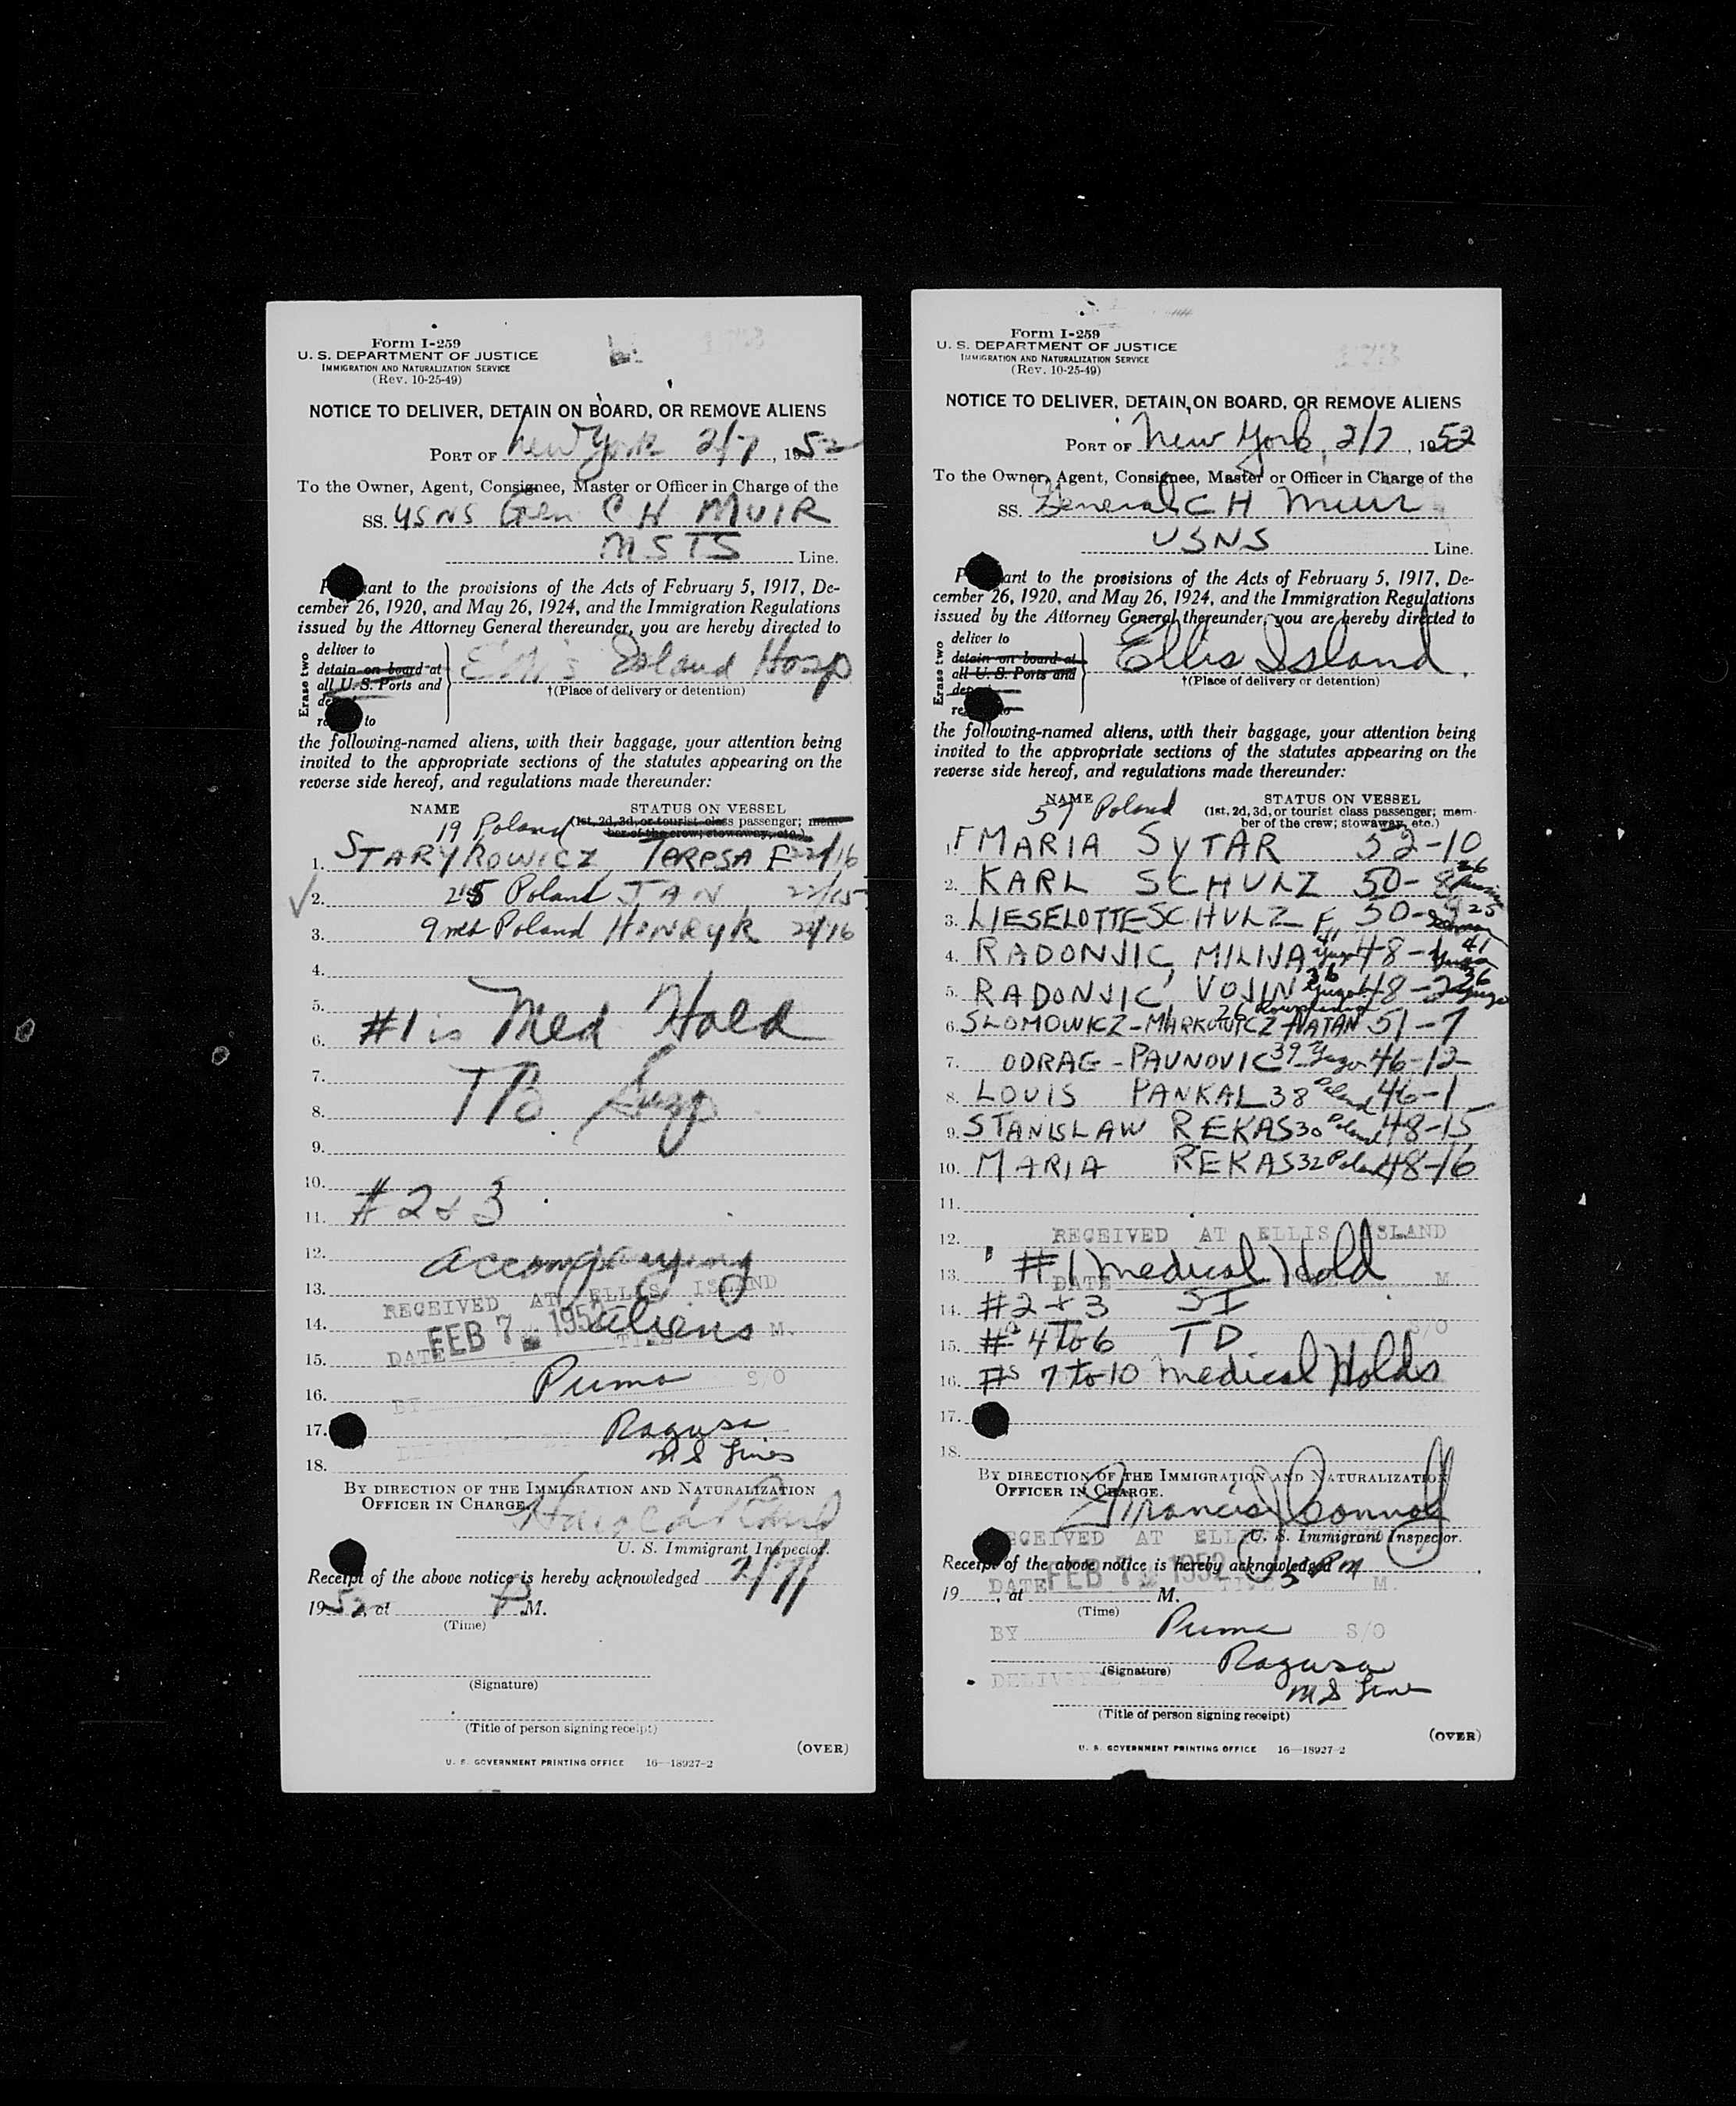 Form I-259
U. S. DEPARTMENT OF JUSTICE
IMMIGRATION AND NATURALIZATION SERVICE
(Rev. 10-25-49)
NOTICE TO DELIVER, DETAIN ON BOARD, OR REMOVE ALIENS
PORT OF New York 2/7, 1952
To the Owner, Agent, Consignee, Master or Officer in Charge of the
SS. USNS Gen C H MUIR
MSTS Line.
ant to the provisions of the Acts of February 5, 1917, De-
cember 26, 1920, and May 26, 1924, and the Immigration Regulations
issued by the Attorney General thereunder, you are hereby directed to
Erase two
deliver to
detain on board at
all U. S. Ports and
to
Ellis Island Hosp
†(Place of delivery or detention)
the following-named aliens, with their baggage, your attention being
invited to the appropriate sections of the statutes appearing on the
reverse side hereof, and regulations made thereunder:
NAME STATUS ON VESSEL
(1st, 2d, 3d, or tourist class passenger; mem-
ber of the crew; stowaway, etc.)
19 Poland
1. STARYROWICZ TERESA F 22/16
2. Poland JAN 22/15
3. 9 Poland HENRYK 22/16
4.
5.
6. #1 is Med Hold
7.
8. TB
9.
10.
11. # 2 & 3
12. accompanying
13.
RECEIVED AT ELLIS ISLAND
14. aliens
DATE FEB 7 1952 TIME M.
15.
16. Puma S/O
BY
17. Ragusa
18. M S Lines
BY DIRECTION OF THE IMMIGRATION AND NATURALIZATION
OFFICER IN CHARGE.
U. S. Immigrant Inspector.
Receipt of the above notice is hereby acknowledged 2/7/
1952, at P M.
(Time)
(Signature)
(Title of person signing receipt)
(OVER)
U. S. GOVERNMENT PRINTING OFFICE 16—18927-2
Form I-259
U. S. DEPARTMENT OF JUSTICE
IMMIGRATION AND NATURALIZATION SERVICE
(Rev. 10-25-49)
NOTICE TO DELIVER, DETAIN ON BOARD, OR REMOVE ALIENS
PORT OF New York, 2/7, 1952
To the Owner, Agent, Consignee, Master or Officer in Charge of the
SS. General C H Muir
USNS Line.
ant to the provisions of the Acts of February 5, 1917, De-
cember 26, 1920, and May 26, 1924, and the Immigration Regulations
issued by the Attorney General thereunder, you are hereby directed to
Erase two
deliver to
detain on board at
all U. S. Ports and
Ellis Island
†(Place of delivery or detention)
the following-named aliens, with their baggage, your attention being
invited to the appropriate sections of the statutes appearing on the
reverse side hereof, and regulations made thereunder:
NAME STATUS ON VESSEL
(1st, 2d, 3d, or tourist class passenger; mem-
ber of the crew; stowaway, etc.)
57 Poland
1. F MARIA SYTAR 52-10
2. KARL SCHULZ 50-8 26
3. LIESELOTTE SCHULZ F 50- 25
4. RADONJIC, MILIJA 41 Yugo 48-1 41
5. RADONJIC, VOJIN 36 Yugo 48-2 36 Yugo
6. SLOMOWICZ-MARKOWICZ-NATAN 51-7
7. ODRAG-PAUNOVIC 39 Yugo 46-12
8. LOUIS PANKAL 38 Poland 46-1
9. STANISLAW REKAS 30 Poland 48-15
10. MARIA REKAS 32 Poland 48-16
11.
12. RECEIVED AT ELLIS ISLAND
13. #1 Medical Hold
DATE M.
14. #2 + 3 SI
15. # 4 to 6 TD S/O
16. #s 7 to 10 Medical Holds
17.
18.
BY DIRECTION OF THE IMMIGRATION AND NATURALIZATION
OFFICER IN CHARGE.
Francis J Connolly
RECEIVED AT ELLIS
U. S. Immigrant Inspector.
Receipt of the above notice is hereby acknowledged 5 PM
DATE FEB 7 1952 TIME M.
19 , at M.
(Time)
BY Puma S/O
(Signature) Ragusa
M S Lines
(Title of person signing receipt)
(OVER)
U. S. GOVERNMENT PRINTING OFFICE 16—18927-2